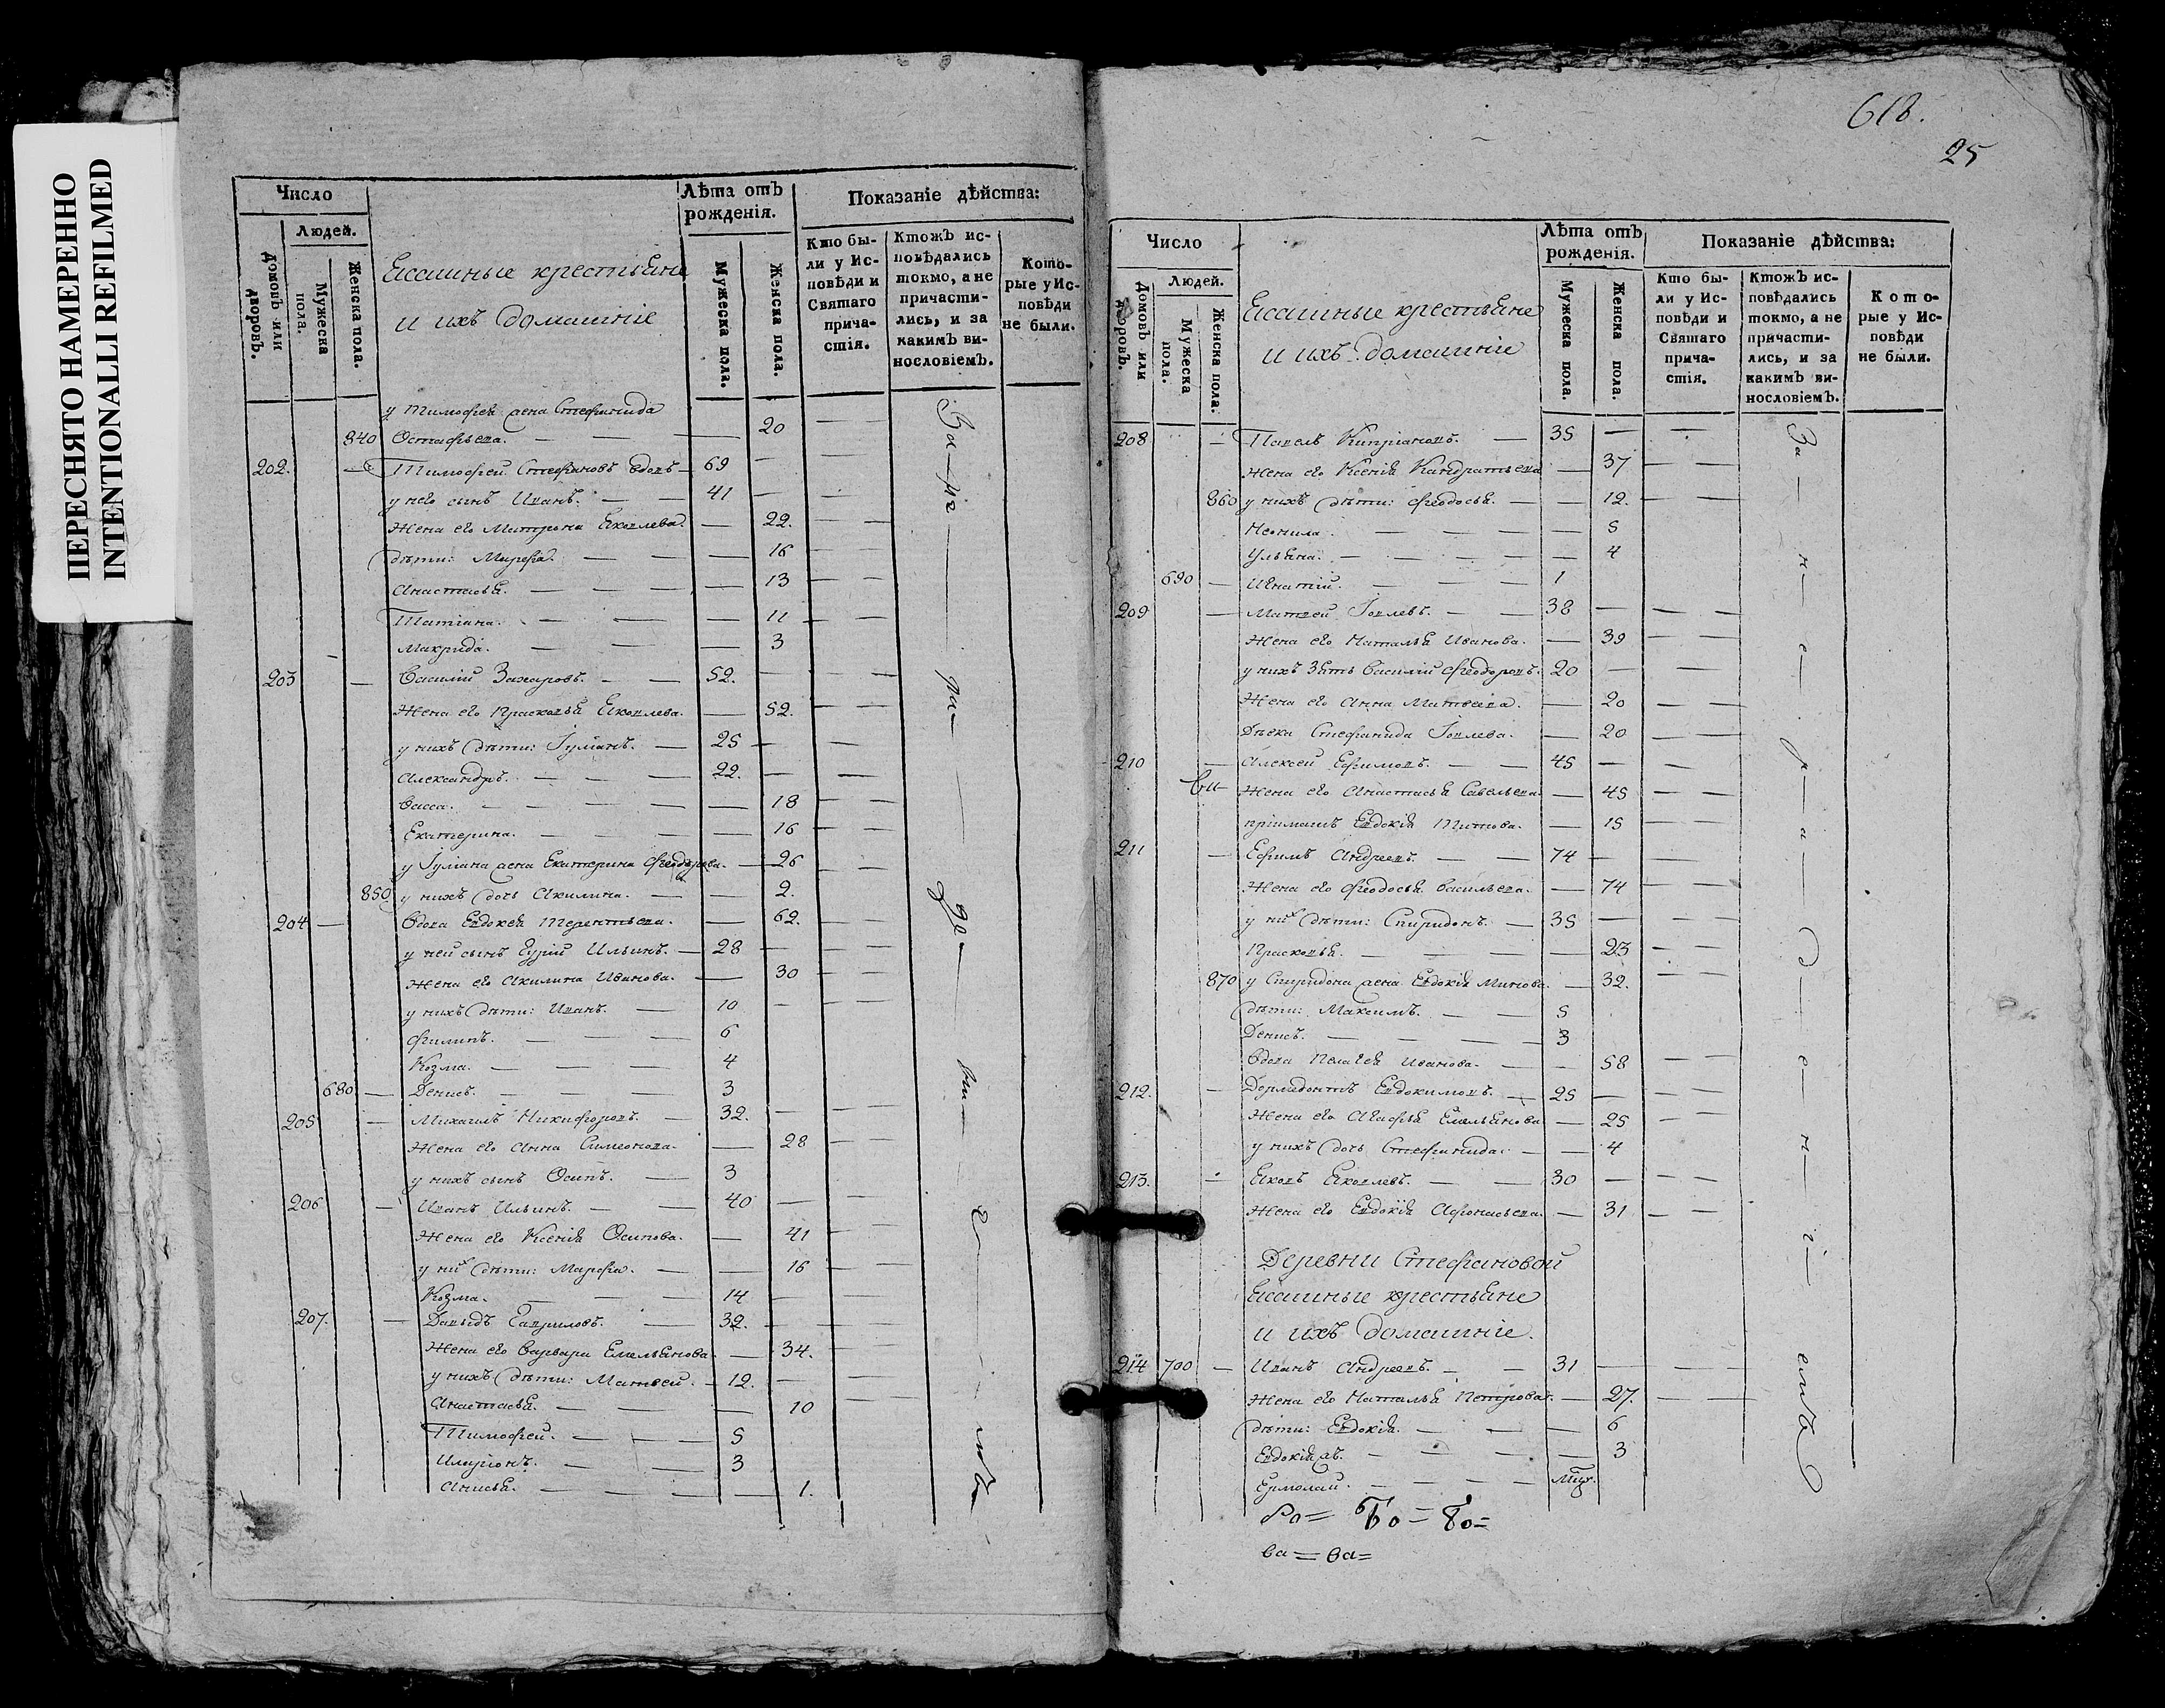 ПЕРЕСНЯТО НАМЕРЕННО
INTENTIONALLI REFILMED
Число
Людей.
Домовъ или дворовъ.
Мужеска пола.
Женска пола.
Ясашные крестьяне
и ихъ домашнiе
Лѣта отъ рожденiя.
Мужеска пола.
Женска пола.
Показанiе дѣйства:
Кто бы-
ли у Ис-
повѣди и
Святаго
прича-
стiя.
Ктожъ ис-
повѣдались
токмо, а не
причасти-
лись, и за
какимъ ви-
нословiемъ.
Кото-
рые у Ис-
повѣди
не были.
у Тимофея жена Стефанида
840 Остафьева. — 20
202. Тимофей Стефановъ вдовъ — 69
у него сынъ Иванъ. — 41
Жена его Матрона Яковлева. — 22.
дѣти: Марфа. — 16
Анастасья. — 13
Татiана. — 11
Макрида. — 3
203 — Василiй Захаровъ. — 52.
Жена его Прасковья Яковлева. — 52.
у нихъ дѣти: Iулiанъ. — 25
Александръ. — 22.
Васса. — 18
Екатерина. — 16
у Iулiана жена Екатерина Феодорова. — 26
850 у нихъ дочь Акилина. — 2.
204 — Вдова Евдокея Терентьева. — 62.
у ней сынъ Гурiй Ильинъ. — 28
Жена его Акилина Иванова. — 30
у нихъ дѣти: Иванъ. — 10
Филипъ. — 6
Козма. — 4
680 — Денисъ. — 3
205 — Михаилъ Никифоровъ. — 32.
Жена его Анна Симеонова. — 28
у нихъ сынъ Осипъ. — 3
206 — Иванъ Ильинъ. — 40
Жена его Ксенiя Осипова. — 41
у них дѣти: Марфа. — 16
Козма. — 14
207. — Давыдъ Гавриловъ. — 32.
Жена его Варвара Емельянова. — 34.
у нихъ дѣти: Матвей. — 12.
Анастасья. — 10
Тимофей. — 5
Иларiонъ. — 3
Анисья. — 1.
618.
25
Число
Людей.
Домовъ или дворовъ.
Мужеска пола.
Женска пола.
Ясашные крестьяне
и ихъ домашнiе
Лѣта отъ рожденiя.
Мужеска пола.
Женска пола.
Показанiе дѣйства:
Кто бы-
ли у Ис-
повѣди и
Святаго
прича-
стiя.
Ктожъ ис-
повѣдались
токмо, а не
причасти-
лись, и за
какимъ ви-
нословiемъ.
Кото-
рые у Ис-
повѣди
не были.
208 — Павелъ Кипрiановъ. — 35
Жена его Ксенiя Кандратьева — 37
860 у нихъ дѣти: Феодосья. — 12.
Неонила. — 5
Ульяна. — 4
690 — Игнатiй. — 1
209 — Матвей Iовлевъ. — 38
Жена его Наталья Иванова. — 39
у нихъ зять Василiй Феодоровъ. 20
Жена его Анна Матвеева. — 20
Дѣвка Стефанида Iовлева. — 20
210 — Алексей Ефимовъ. — 45
Жена его Анастасья Савельева. — 45
прiимышъ Евдокiя Титова. — 15
211 — Ефимъ Андреевъ. — 74
Жена его Феодосья Васильева. — 74
у них дѣти: Спиридонъ. — 35
Прасковья. — 23
870 у Спиридона жена Евдокiя Минова. — 32.
дѣти: Максимъ. — 5
Денисъ. — 3
Вдова Пелагея Иванова. — 58
212. — Дормидонтъ Евдокимовъ. — 25
Жена его Агафья Емельянова — 25
у нихъ дочь Стефанида. — 4
213. Яковъ Яковлевъ. — 30
Жена его Евдокiя Афонасьева. — 31
Деревни Стефановой
Ясашные крестьяне
и ихъ домашнiе.
214 700 — Иванъ Андреевъ. — 31
Жена его Наталья Петрова. — 27.
дѣти: Евдокiя. — 6
Евдокiя жъ. — 3
Ермолай. —